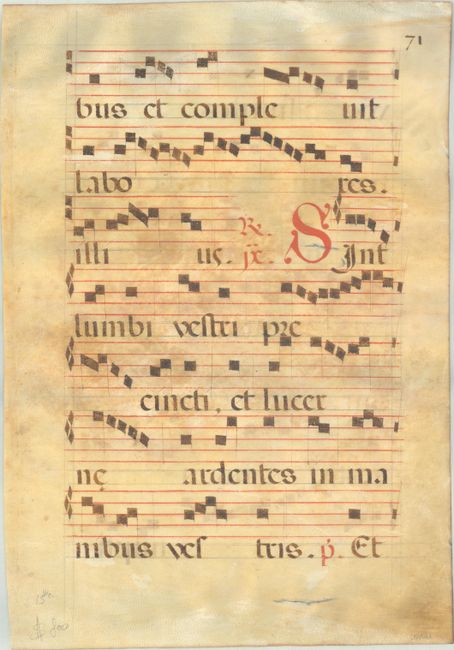 71
bus et comple uit
labo res.
illi us. Re. jx. SInt
lumbi vestri pre
cincti, et lucer
nę ardentes in ma
nibus ves tris. p. Et